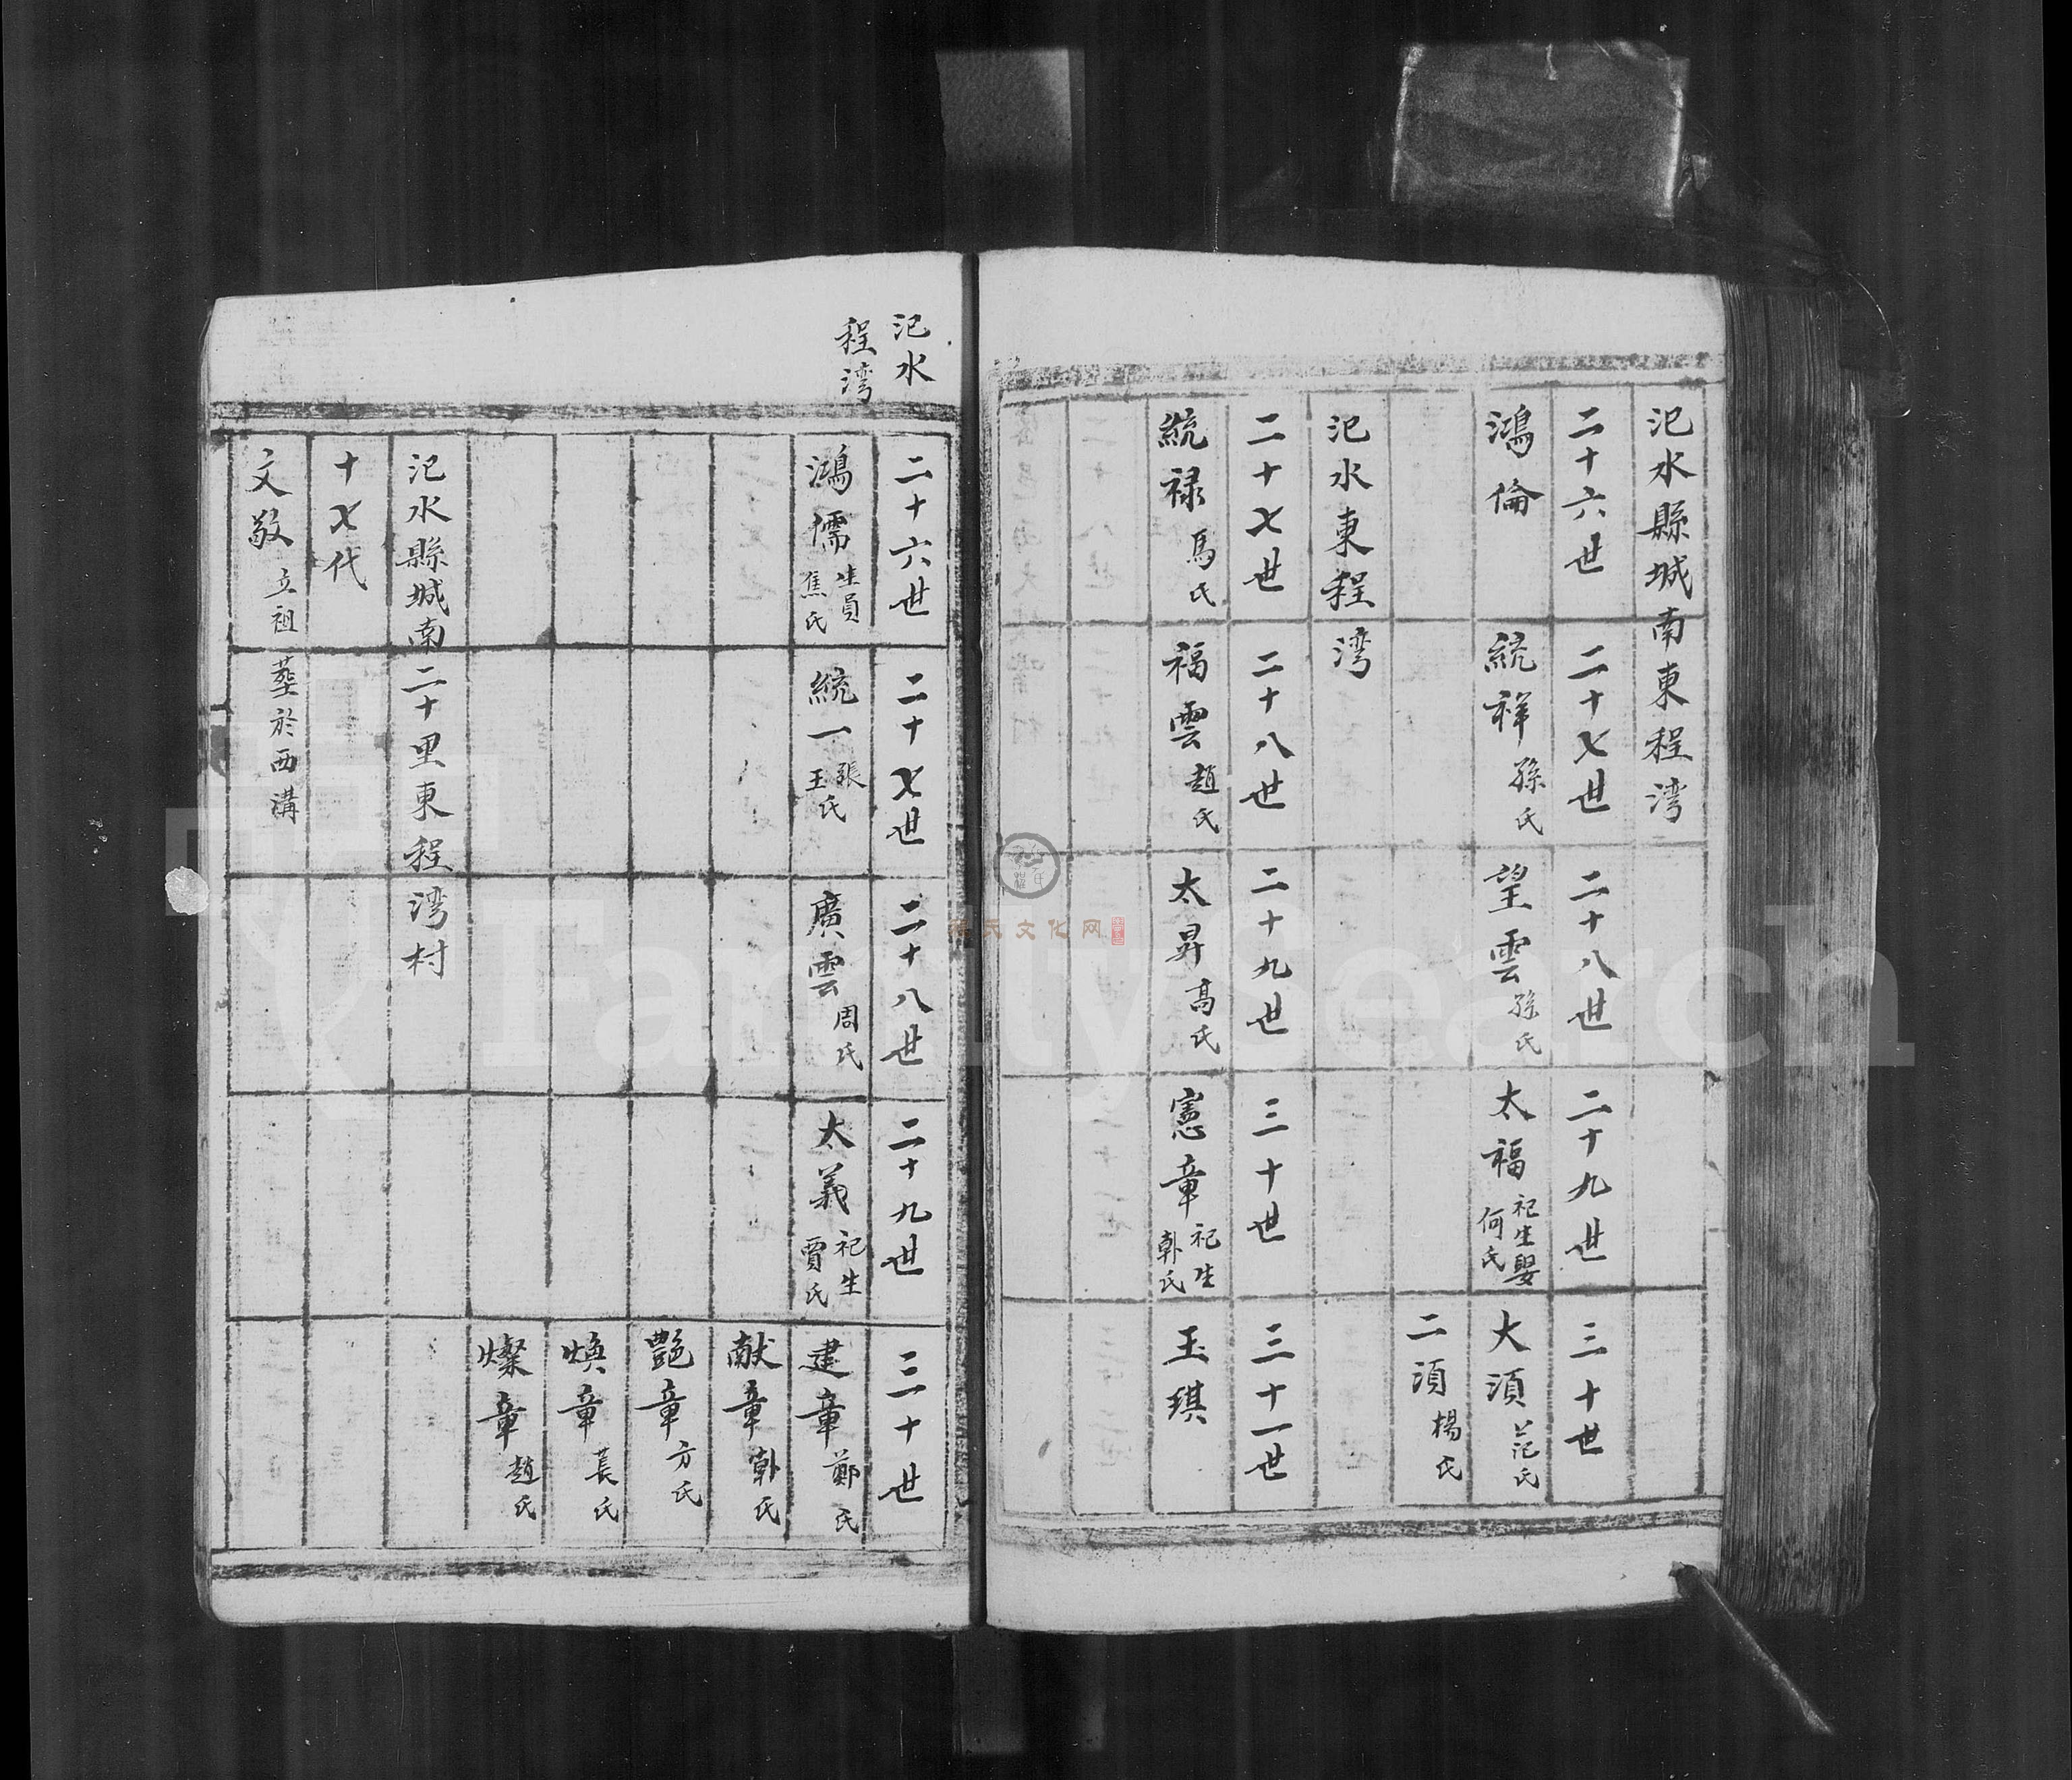 汜水縣城南東程湾
二十六世 二十七世 二十八世 二十九世 三十世
鴻倫 統祥 孫氏 望雲 孫氏 太福 祀生娶何氏 大湏 范氏
二湏 楊氏
汜水東程湾
二十七世 二十八世 二十九世 三十世 三十一世
統禄 馬氏 福雲 趙氏 太昇 高氏 憲章 祀生 韩氏 玉琪
汜水
程湾
二十六世 二十七世 二十八世 二十九世 三十世
鴻儒 生員 焦氏 統一 張王氏 廣雲 周氏 太義 祀生 賈氏 建章 鄭氏
献章 韩氏
艷章 方氏
煥章 萇氏
燦章 趙氏
汜水縣城南二十里東程湾村
十七代
文敬 立祖 葬於西溝
氏文化网
FamilySearch